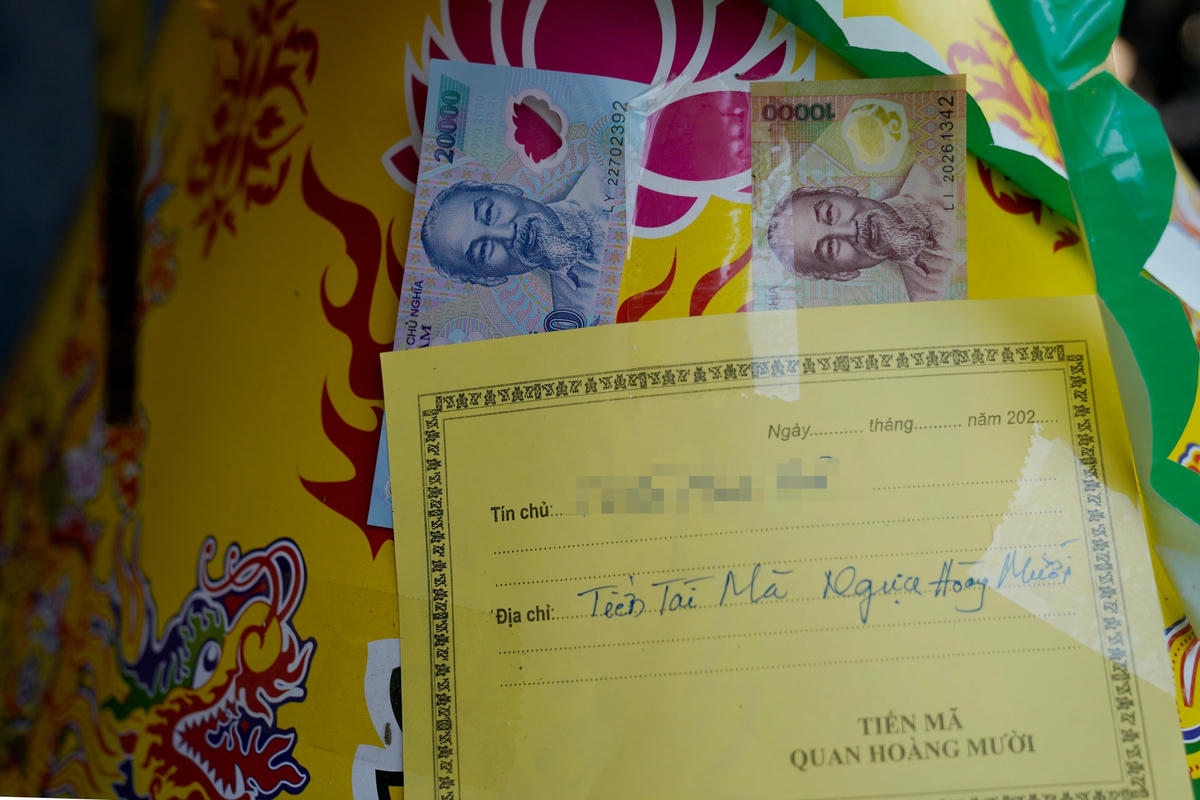 20000
LY 22702392
CHỦ NGHĨA
AM
10000
LI 20261342
NGHĨA
Ngày........... tháng.......... năm 202.....
Tín chủ:
Địa chỉ: Tiến Tài Mã Ngựa Hoàng Mười
TIẾN MÃ
QUAN HOÀNG MƯỜI